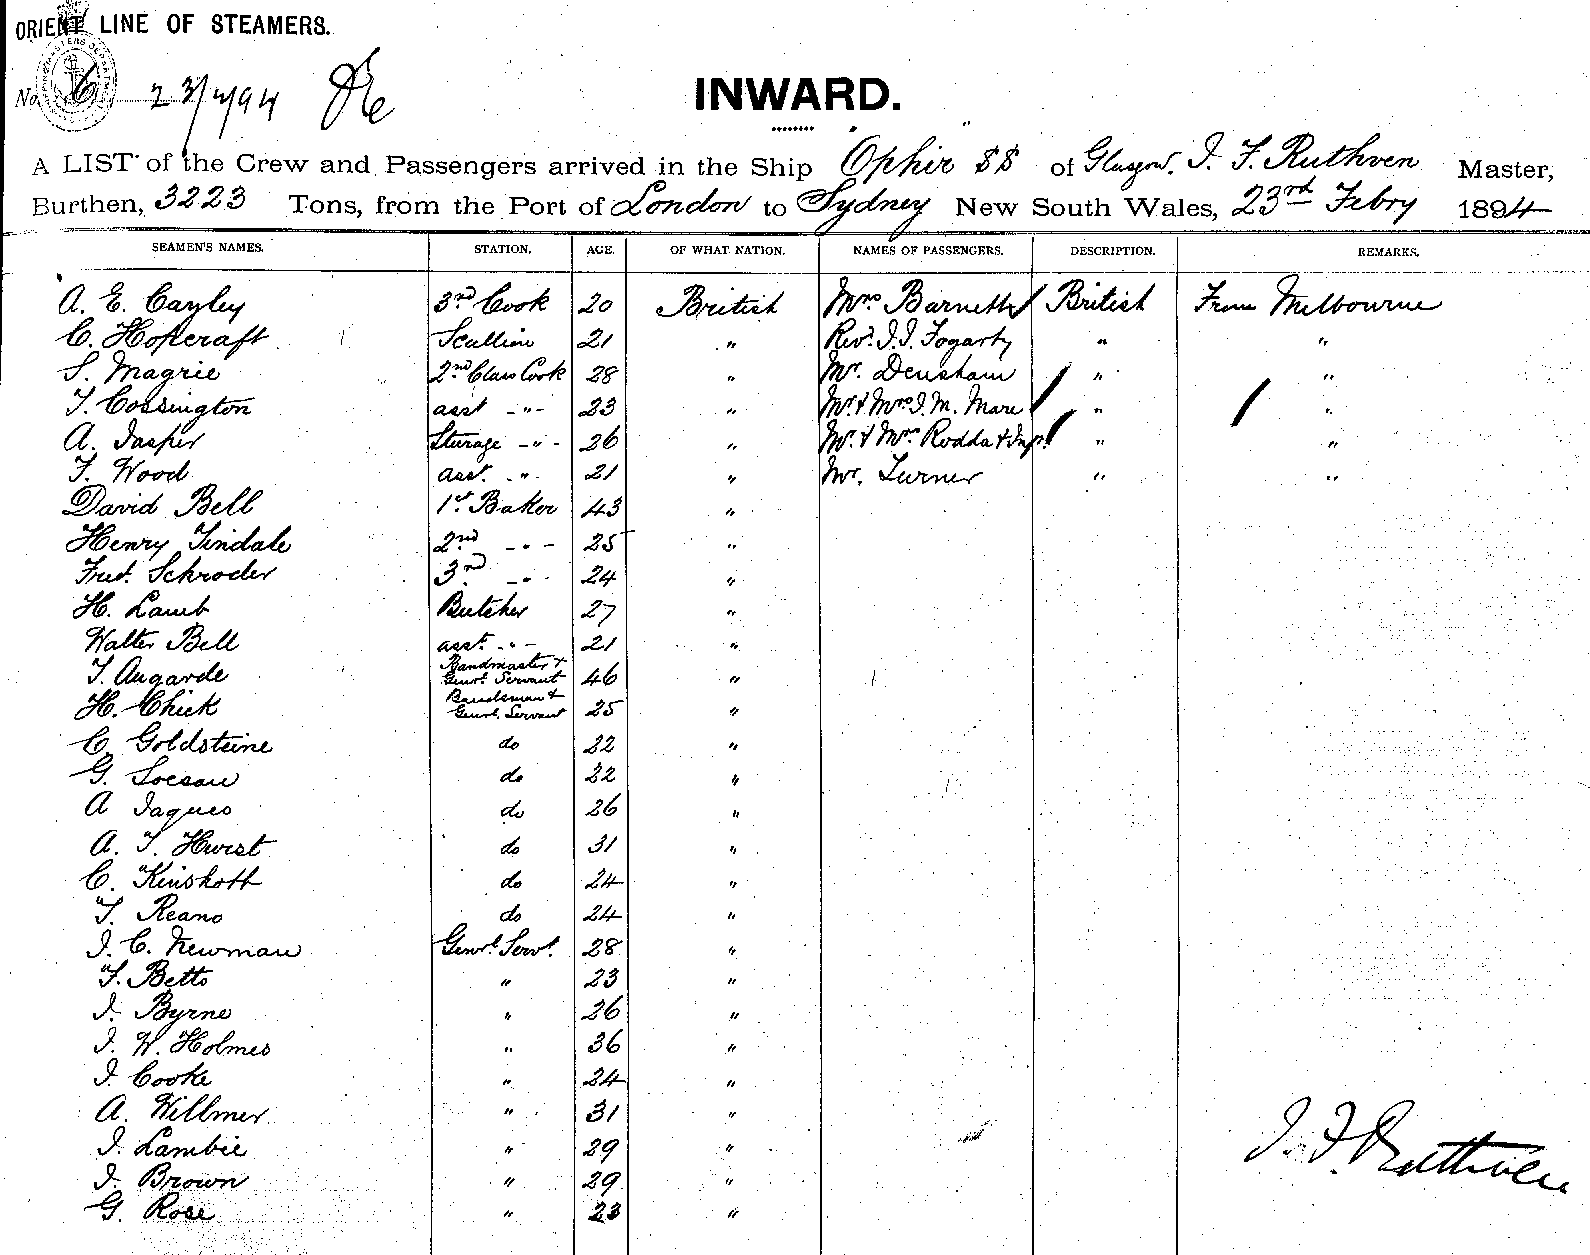 ORIENT LINE OF STEAMERS.
No. 6 23/2/94
INWARD.
A LIST of the Crew and Passengers arrived in the Ship Ophir SS of Glasgow. J. F. Ruthven Master,
Burthen, 3223 Tons, from the Port of London to Sydney New South Wales, 23rd Febry 1894
SEAMEN'S NAMES. STATION. AGE. OF WHAT NATION. NAMES OF PASSENGERS. DESCRIPTION. REMARKS.
A. E. Cayley 3rd Cook 20 British Mrs Barnett British From Melbourne
C. Hoftcraft Scullion 21 " Revd. J. J. Fogarty " "
S. Magrie 2nd Class Cook 28 " Mr. Densham " "
T. Cossington asst -"- 23 " Mr & Mrs J. M. Mare " "
A. Jasper Sturage -"- 26 " Mr. & Mrs Rodda & Inft. " "
F. Wood asst. -"- 21 " Mr. Turner " "
David Bell 1st Baker 43 "
Henry Tindale 2nd -"- 25 "
Fred. Schroder 3rd -"- 24 "
H. Lamb Butcher 27 "
Walter Bell asst. -"- 21 "
T. Augarde Bandmaster & Genrl. Servant 46 "
H. Chick Bandsman & Genrl. Servant 25 "
C. Goldsteine do 22 "
G. do 22 "
A Jaques do 26 "
A. T. Hurst do 31 "
C. Kinshott do 24 "
T. Reano do 24 "
J. C. Newman Genrl. Servt. 28 "
F. Betts " 23 "
J. Byrne " 26 "
J. W. Holmes " 36 "
J. Cooke " 24 "
A. Willmer " 31 "
J. Lambie " 29 "
J. Brown " 29 "
G. Rose " 23 "
J. F. Ruthven